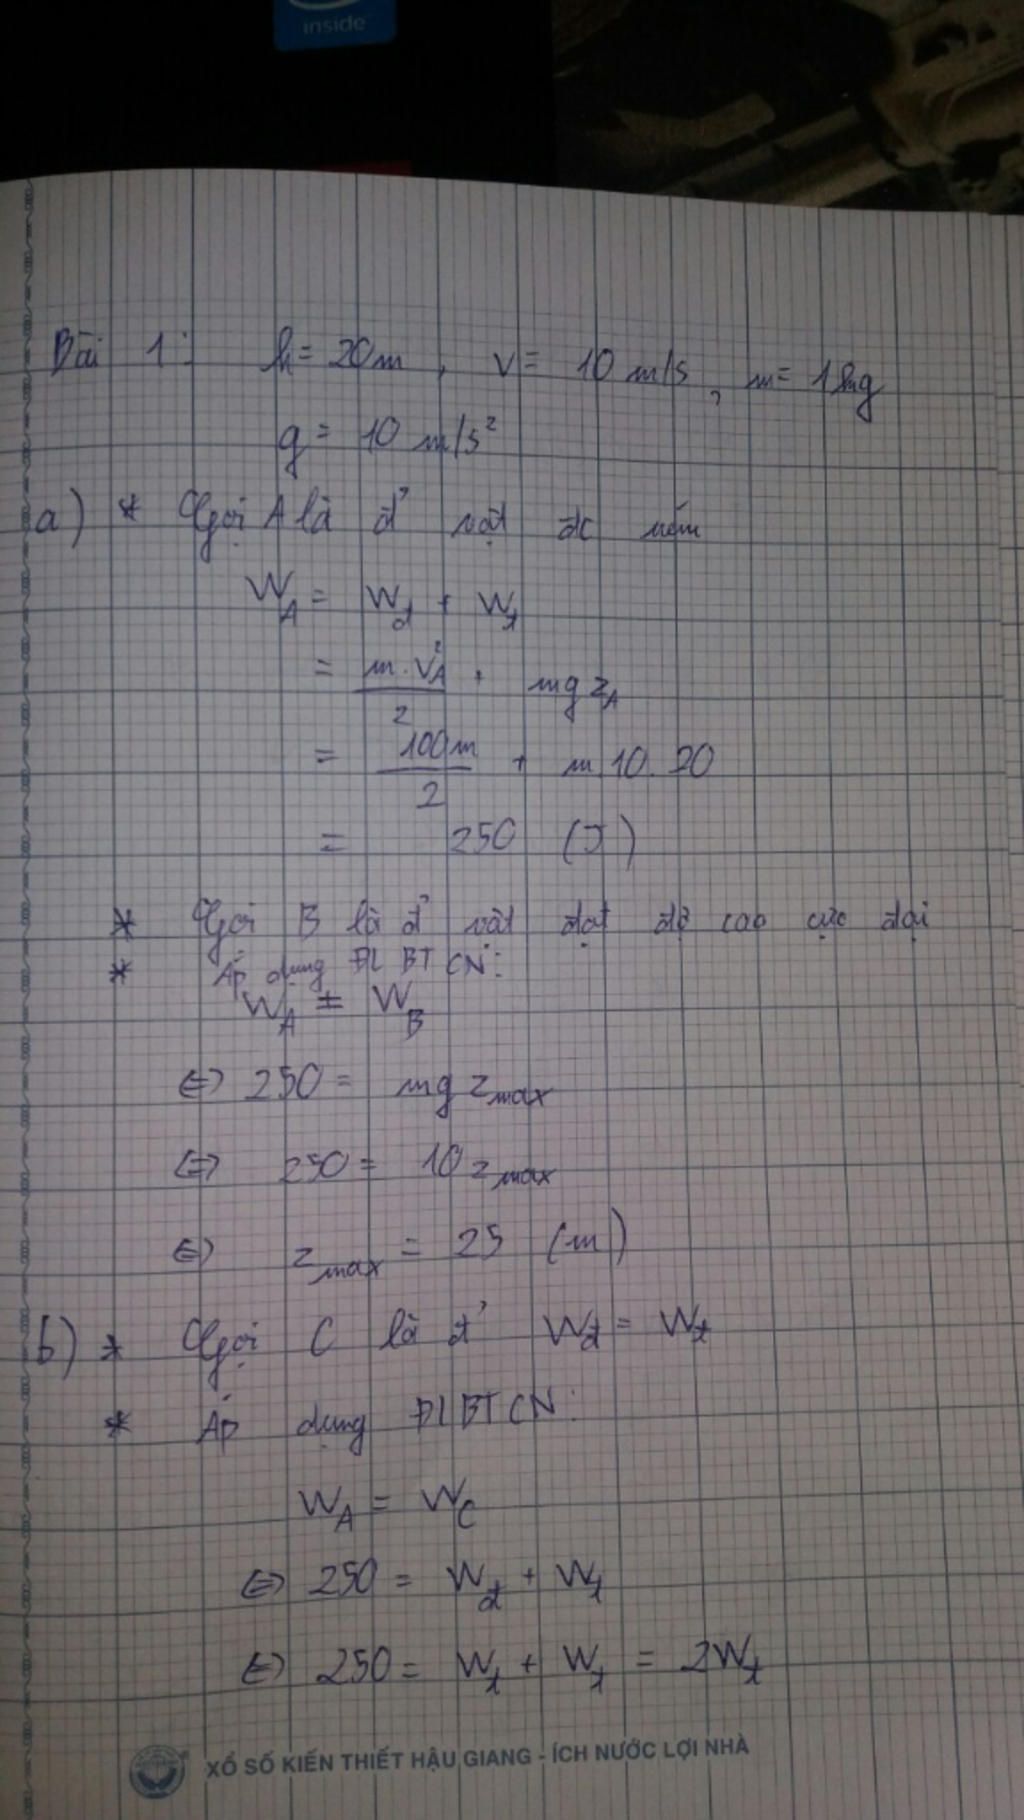 inside
Bài 1: h = 20m, v = 10 m/s, m = 1kg
g = 10 m/s²
a) * Gọi A là đ' vật đc ném
W_A = W_đ + W_t
= m.v_A²/2 + mgz_A
= 100m/2 + m.10.20
= 250 (J)
* Gọi B là đ' vật đạt độ cao cực đại
* Áp dụng ĐL BT CN:
W_A = W_B
⇔ 250 = mgz_max
⇔ 250 = 10z_max
⇔ z_max = 25 (m)
b) * Gọi C là đ' W_đ = W_t
* Áp dụng ĐLBTCN:
W_A = W_C
⇔ 250 = W_đ + W_t
⇔ 250 = W_t + W_t = 2W_t
XỔ SỐ KIẾN THIẾT HẬU GIANG - ÍCH NƯỚC LỢI NHÀ